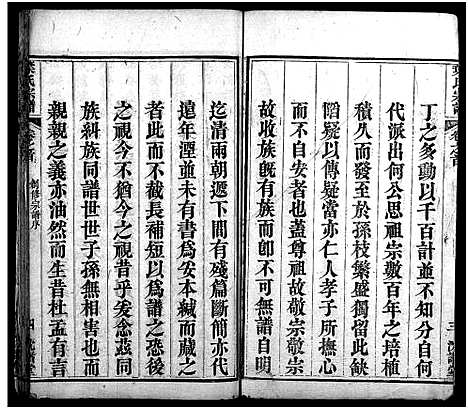 丁之多動以千百計並不知分自何
代派出何公思祖宗數百年之培植
積久而發若大孫枝繁盛儻因此缺
陷疑以傳疑當亦仁人孝子所撫心
而不自安者也盖尊祖故敬宗敬宗
故睦族旣有族而卽不可無譜自明
迄清兩朝遞下間有殘篇斷簡亦代
遠年湮並未有書爲妥本緘而藏之
者玆不敢截長補短以爲譜之恐後
之視今不猶今之視昔乎爰念茲同
族糾族同譜世世子孫無相害也而
親親之義亦油然而生昔杜孟有言
葉氏宗譜
卷之首
創修宗譜序
四
三